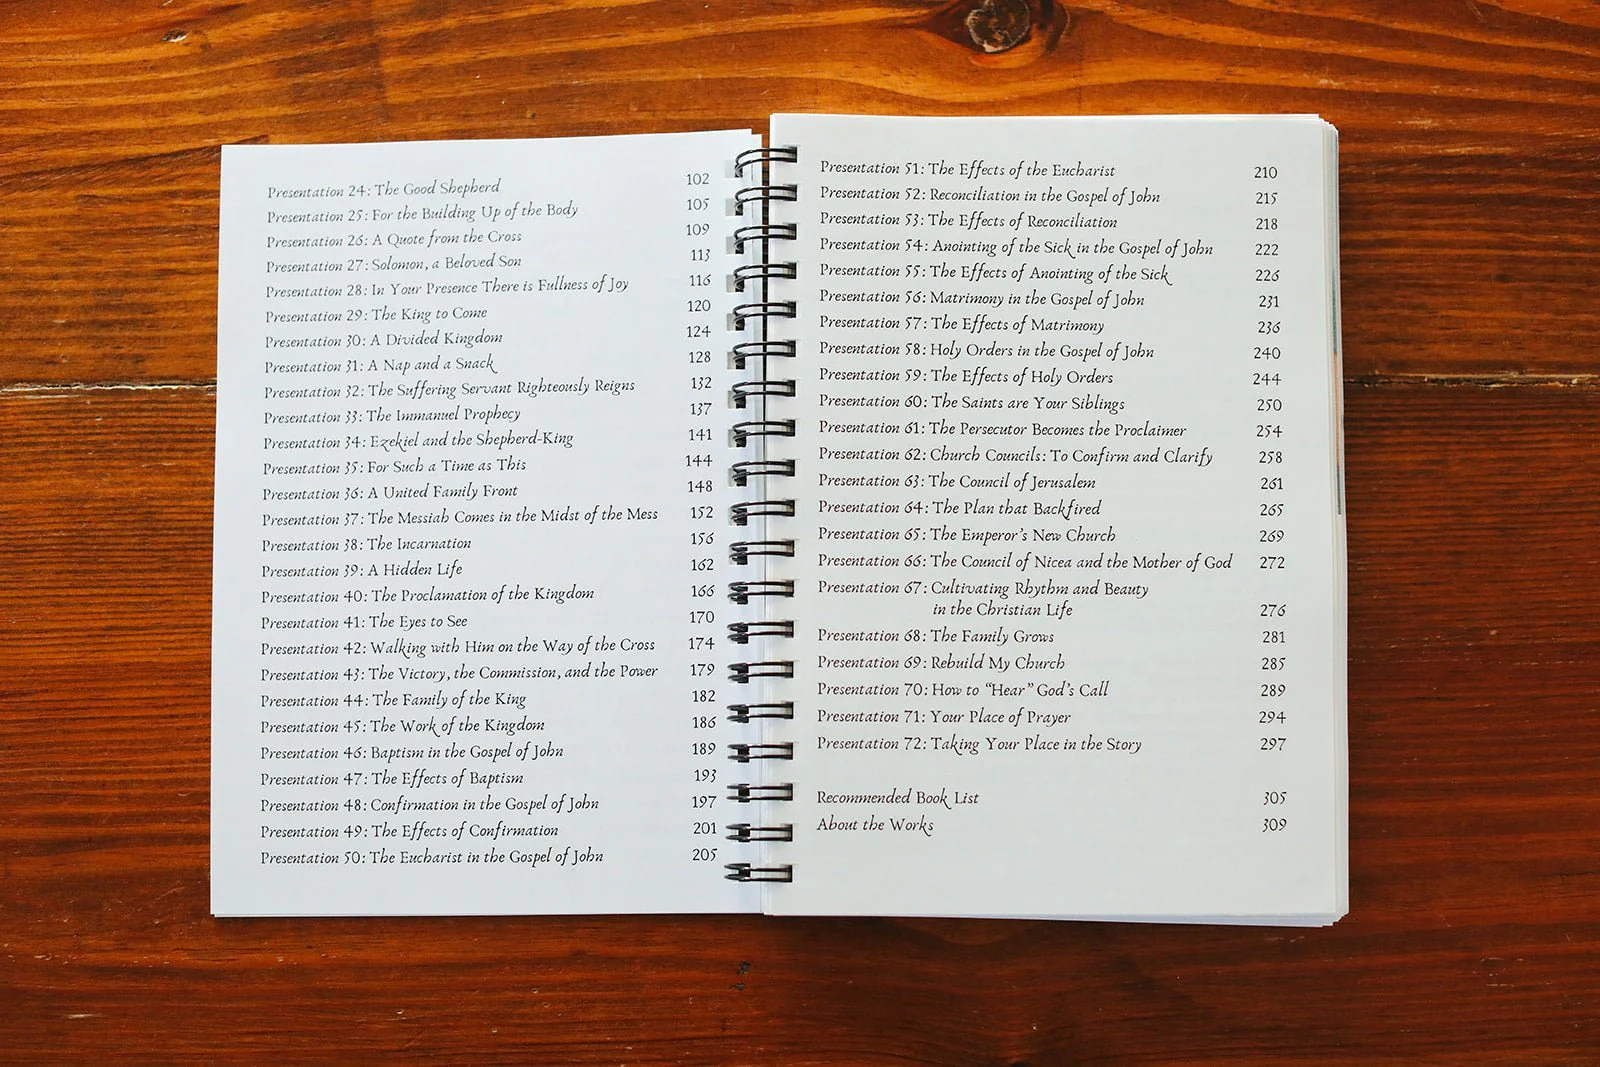 Presentation 24: The Good Shepherd 102
Presentation 25: For the Building Up of the Body 105
Presentation 26: A Quote from the Cross 109
Presentation 27: Solomon, a Beloved Son 113
Presentation 28: In Your Presence There is Fullness of Joy 116
Presentation 29: The King to Come 120
Presentation 30: A Divided Kingdom 124
Presentation 31: A Nap and a Snack 128
Presentation 32: The Suffering Servant Righteously Reigns 132
Presentation 33: The Immanuel Prophecy 137
Presentation 34: Ezekiel and the Shepherd-King 141
Presentation 35: For Such a Time as This 144
Presentation 36: A United Family Front 148
Presentation 37: The Messiah Comes in the Midst of the Mess 152
Presentation 38: The Incarnation 156
Presentation 39: A Hidden Life 162
Presentation 40: The Proclamation of the Kingdom 166
Presentation 41: The Eyes to See 170
Presentation 42: Walking with Him on the Way of the Cross 174
Presentation 43: The Victory, the Commission, and the Power 179
Presentation 44: The Family of the King 182
Presentation 45: The Work of the Kingdom 186
Presentation 46: Baptism in the Gospel of John 189
Presentation 47: The Effects of Baptism 193
Presentation 48: Confirmation in the Gospel of John 197
Presentation 49: The Effects of Confirmation 201
Presentation 50: The Eucharist in the Gospel of John 205
Presentation 51: The Effects of the Eucharist 210
Presentation 52: Reconciliation in the Gospel of John 215
Presentation 53: The Effects of Reconciliation 218
Presentation 54: Anointing of the Sick in the Gospel of John 222
Presentation 55: The Effects of Anointing of the Sick 226
Presentation 56: Matrimony in the Gospel of John 231
Presentation 57: The Effects of Matrimony 236
Presentation 58: Holy Orders in the Gospel of John 240
Presentation 59: The Effects of Holy Orders 244
Presentation 60: The Saints are Your Siblings 250
Presentation 61: The Persecutor Becomes the Proclaimer 254
Presentation 62: Church Councils: To Confirm and Clarify 258
Presentation 63: The Council of Jerusalem 261
Presentation 64: The Plan that Backfired 265
Presentation 65: The Emperor's New Church 269
Presentation 66: The Council of Nicea and the Mother of God 272
Presentation 67: Cultivating Rhythm and Beauty
in the Christian Life 276
Presentation 68: The Family Grows 281
Presentation 69: Rebuild My Church 285
Presentation 70: How to "Hear" God's Call 289
Presentation 71: Your Place of Prayer 294
Presentation 72: Taking Your Place in the Story 297
Recommended Book List 305
About the Works 309